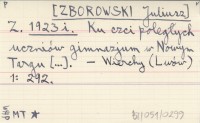 [ZBOROWSKI Juliusz]
Z. 1923 i. Ku czci poległych
uczniów gimnazjum w Nowym
Targu [...]. – Wierchy (Lwów)
1: 292.
MT ★